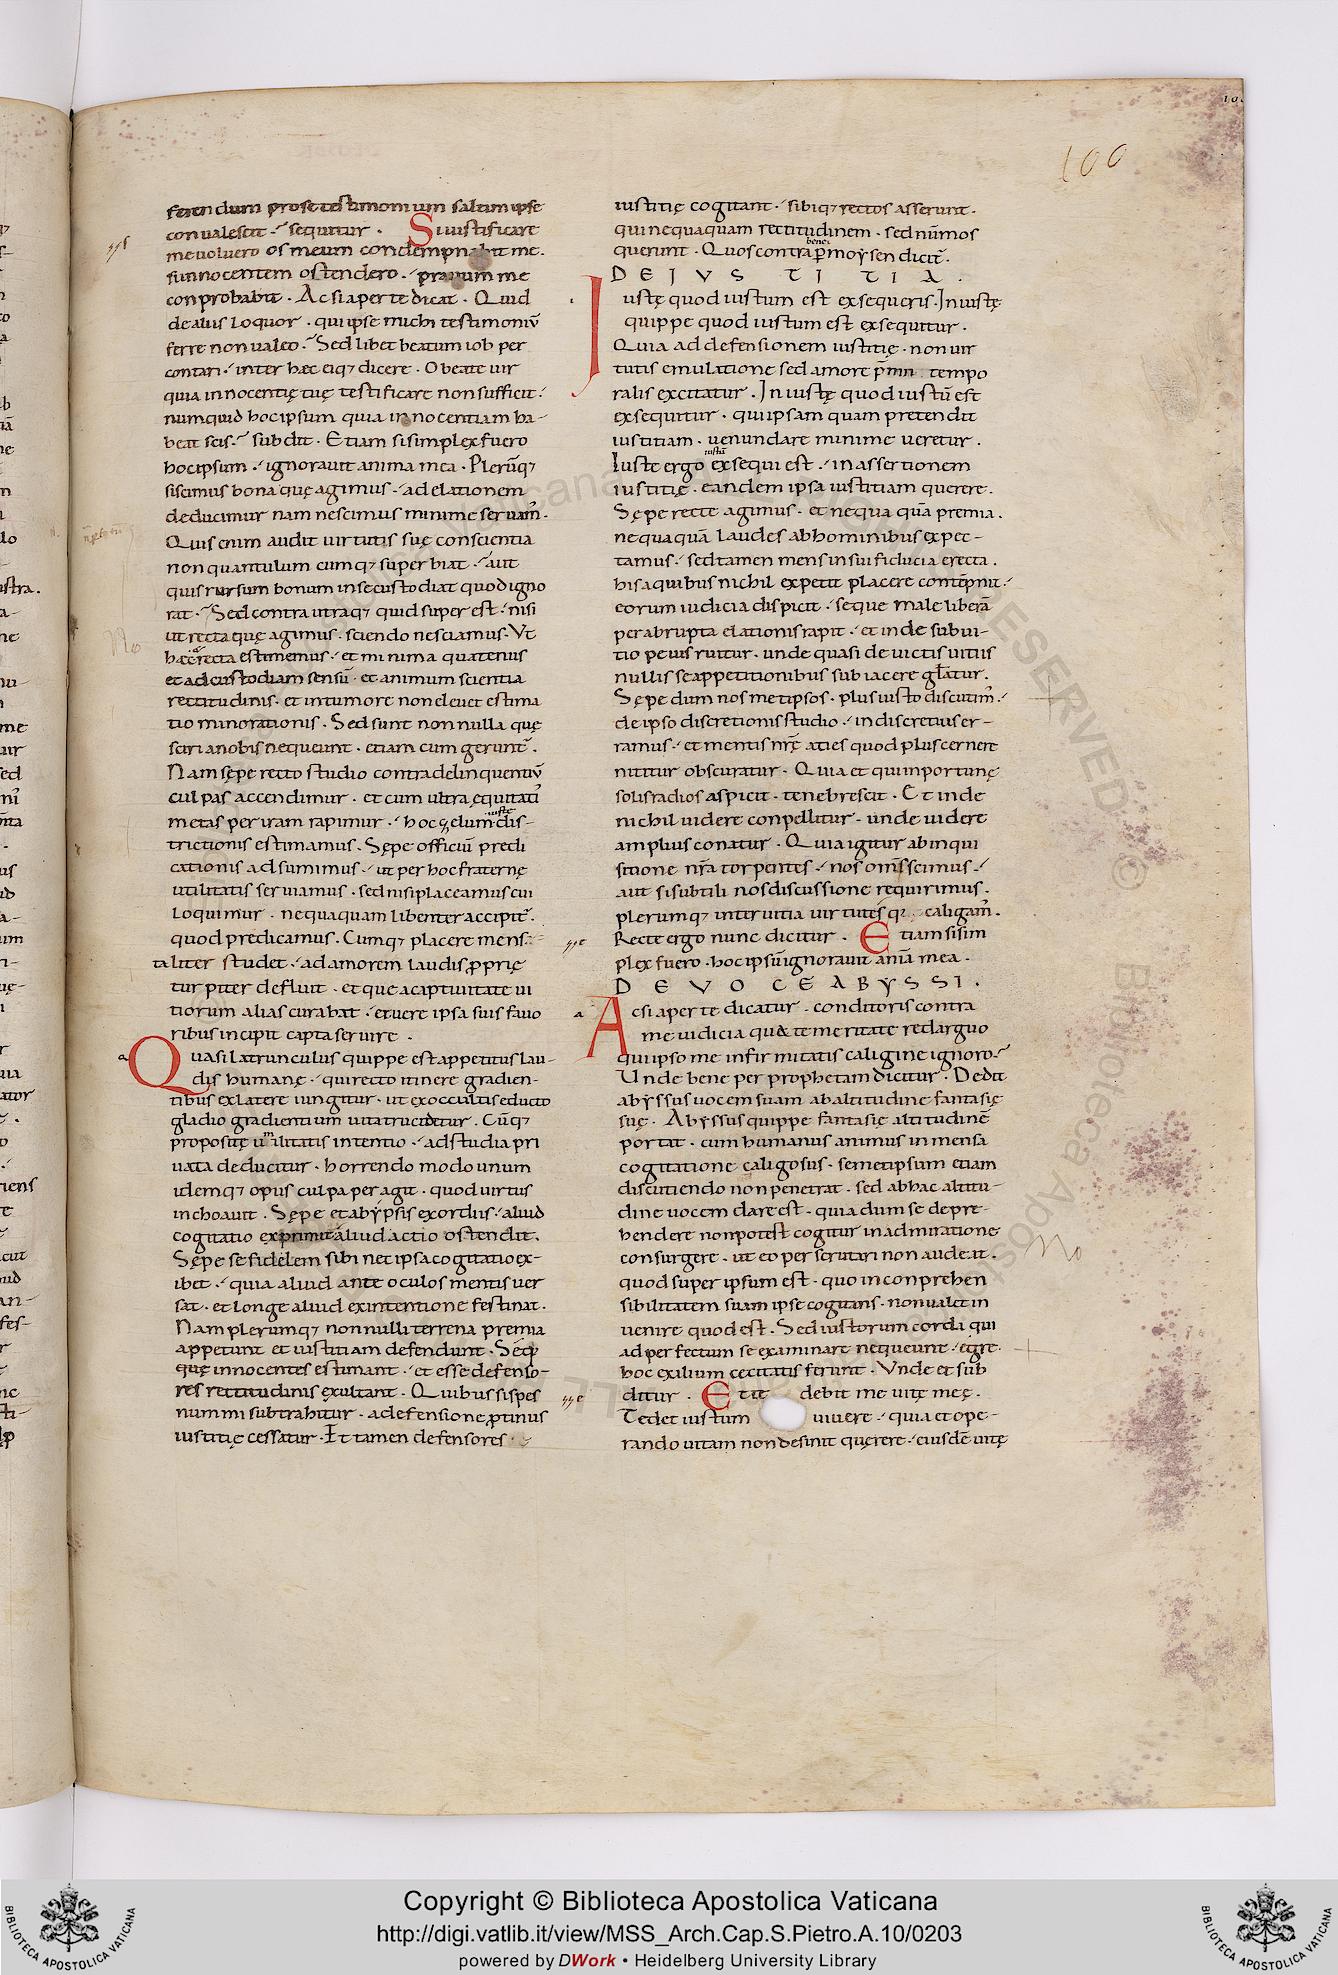 100
ferendum prose testimonium saltim ipse
conualescit · sequitur · Si iustificare
me uoluero os meum condempnabit me ·
si innocentem ostendero · prauum me
conprobabit · Ac si aperte dicat · Quid
de aliis loquor · qui ipse michi testimoniū
ferre non ualeo · Sed libet beatum iob per
contari · inter hęc eiq; dicere · O beate uir
quia innocentię tuę testificare non sufficit ·
numquid hoc ipsum quia innocentiam ha-
beat scis · subdit · Etiam si simplex fuero
hoc ipsum · ignorauit anima mea · Plerūq;
si scimus bona quę agimus · ad elationem
deducimur nam nescimus minime seruam̄ ·
Quis enim audit uirtutis suę conscientia
non quantulum cumq; superbiat · aut
quis rursum bonum in se custodiat quod igno
rat · Sed contra utraq; quid super est · nisi
ut recta quę agimus · sciendo nesciamus · Vt
hęc recta estimemus · et minima quatenus
et ad custodiam sensū · et animum scientia
rectitudinis · et in tumore non eleuet estima
tio minorationis · Sed sunt non nulla quę
sciri a nobis nequeunt · etiam cum gerunt̄ ·
Nam sępe recto studio contra delinquentiū
culpas accendimur · et cum ultra equitatī
metas per iram rapimur · hoc zelum iustę dis-
trictionis estimamus · Sępe officiū predi
cationis adsumimus · ut per hoc fraternę
utilitatis seruiamus · sed nisi placeamus cui
loquimur · nequaquam libenter accipit̄ ·
quod predicamus · Cumq; placere mens
taliter studet · ad amorem laudis proprię
turpiter defluit · et que a captiuitate ui
tiorum alias curabat · et uere ipsa suis fauo
ribus incipit capta seruire ·
Quasi latrunculus quippe est appetitus lau-
dis humanę · qui recto itinere gradien-
tibus ex latere iungitur · ut ex occultis educto
gladio gradientium uita trucidetur · Cūq;
propositę utilitatis intentio · ad studia pri
uata deducitur · horrendo modo unum
idemq; opus culpa peragit · quod uirtus
inchoauit · Sępe et ab ypsis exordiis · aliud
cogitatio exprimit aliud actio ostendit ·
Sępe se fidelem sibi nec ipsa cogitatio ex-
ibet · quia aliud ante oculos mentis uer
sat · et longe aliud ex intentione festinat ·
Nam plerumq; non nulli terrena premia
appetunt et iustitiam defendunt · Seq̄
quę innocentes estimant · et esse defenso-
res rectitudinis exultant · Quibus si spes
nummi subtrahitur · a defensione protinus
iustitię cessatur · Et tamen defensores
iustitię cogitant · sibiq; rectos asserunt ·
qui nequaquam rectitudinem · sed nūmos
querunt · Quos contra bene p̄ moysen dicit̄ ·
DE IVSTITIA ·
Iustę quod iustum est exsequeris · Iniustę
quippe quod iustum est exsequitur ·
Quia ad defensionem iustitię · non uir
tutis emulatione sed amore p̄mii tempo
ralis excitatur · Iniustę quod iustū est
exsequitur · qui ipsam quam pretendit
iustitiam · uenundare minime ueretur ·
Iuste ergo iustū exsequi est · in assertionem
iustitię · eandem ipsa iustitiam querere ·
Sępe recte agimus · et nequa quā premia ·
nequaquā laudes ab hominibus expec-
tamus · sed tamen mens in sui fiducia erecta ·
his a quibus nichil expetit placere contēpnit ·
eorum iudicia dispicit · seque male liberā
per abrupta elationis rapit · et inde sub ui-
tio peius ruitur · unde quasi deuictis uitiis
nullis se appetitionibus subiacere glātur ·
Sępe dum nosmetipsos · plus iusto discutim̄ ·
de ipso discretionis studio · indiscretius er-
ramus · et mentis nr̄ę acies quod plus cernere
nititur obscuratur · Quia et qui inportunę
solis radios aspicit · tenebrescit · Et inde
nichil uidere conpellitur · unde uidere
amplius conatur · Quia igitur ab inqui
sitione nr̄a torpentes · nos om̄s scimus ·
aut si subtili nos discussione requirimus ·
plerumq; inter uitia uirtutesq; caligam̄ ·
Recte ergo nunc dicitur · Etiam si sim
plex fuero · hoc ipsū ignorauit aniā mea ·
DE VOCE ABYSSI ·
Ac si aperte dicatur · conditoris contra
me iudicia qua temeritate redarguo
qui ipso me infirmitatis caligine ignoro ·
Unde bene per prophetam dicitur · Dedit
abyssus uocem suam ab altitudine fantasię
suę · Abyssus quippe fantasię altitudinē
portat · cum humanus animus inmensa
cogitatione caligosus · semetipsum etiam
discutiendo non penetrat · sed ab hac altitu-
dine uocem dare est · quia dum se depre-
hendere non potest cogitur in admiratione
consurgere · ut eo perscrutari non audeat ·
quod super ipsum est · quo inconprehen
sibilitatem suam ipse cogitans · non ualet in
uenire quod est · Sed iustorum corda qui
ad perfectum se examinare nequeunt · egre
hoc exilium cecitatis ferunt · Vnde et sub
ditur · Et tedebit me uitę meę ·
Tedet iustum uiuere · quia et ope-
rando uitam non desinit quęrere · eiusdē uitę
Copyright © Biblioteca Apostolica Vaticana
http://digi.vatlib.it/view/MSS_Arch.Cap.S.Pietro.A.10/0203
powered by DWork • Heidelberg University Library